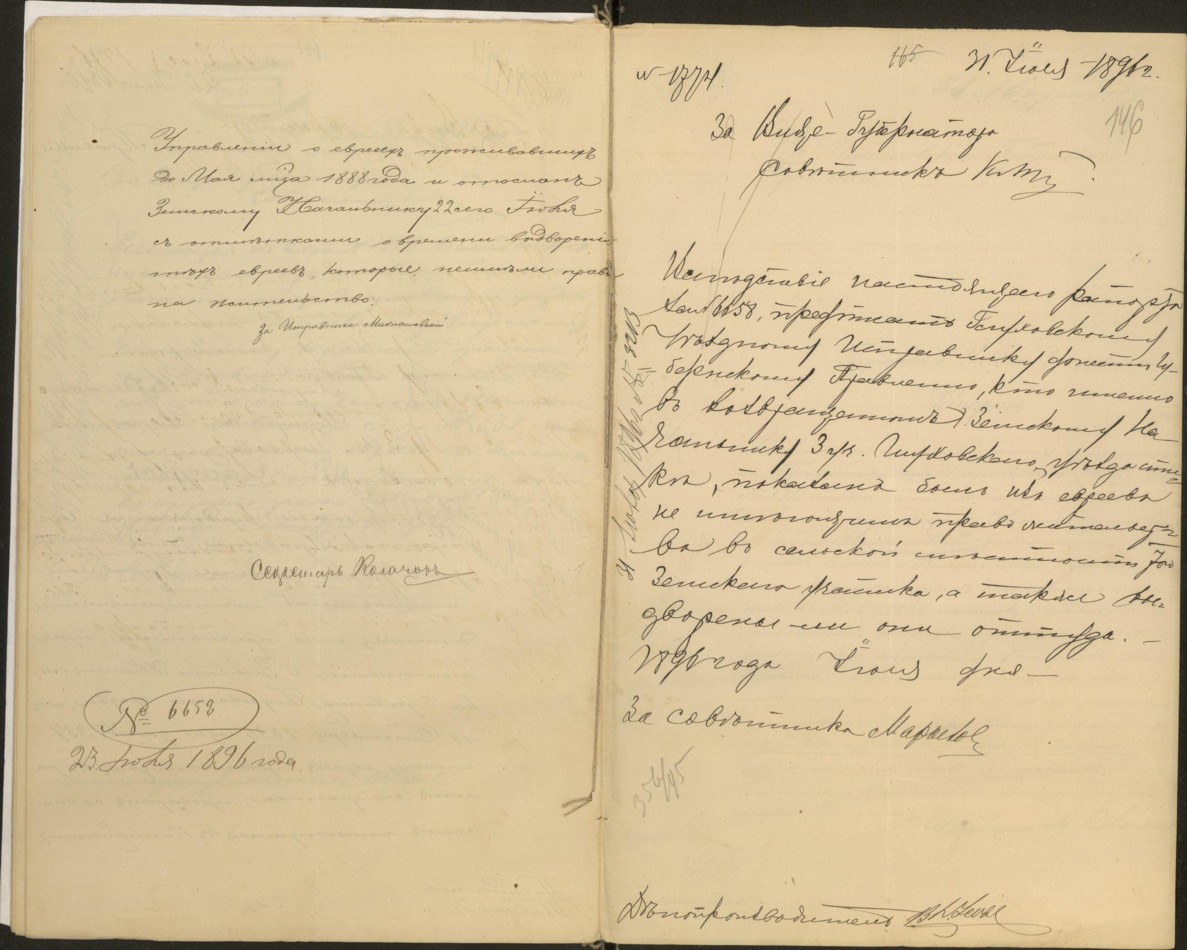 Управленіи о евреяхъ проживавшихъ
до Мая м-ца 1888 года и отосланъ
Земскому Начальнику 22 сего Іюля
съ отмѣтками о времени водворенія
тѣхъ евреевъ, которые не имѣли права
на жительство.
За Исправника
Секретарь
№ 6658
23 Іюля 1896 года
165 31 Іюля 1896 г.
N 1374.
146
За Вице-Губернатора
Совѣтникъ
Вслѣдствіе настоящаго рапорта
за № 6658, предписать Глуховскому
Уѣздному Исправнику донести Гу-
бернскому Правленію, кто именно
въ возвращенномъ Земскому На-
чальнику 3 уч. Глуховскаго уѣзда спис-
кѣ, показанъ былъ изъ евреевъ
не имѣющимъ права жительст-
ва въ сельской мѣстности 3го
Земскаго участка, а также вы-
дворены ли они оттуда. —
1896 года Іюля дня —
За совѣтника
356/95
Дѣлопроизводитель